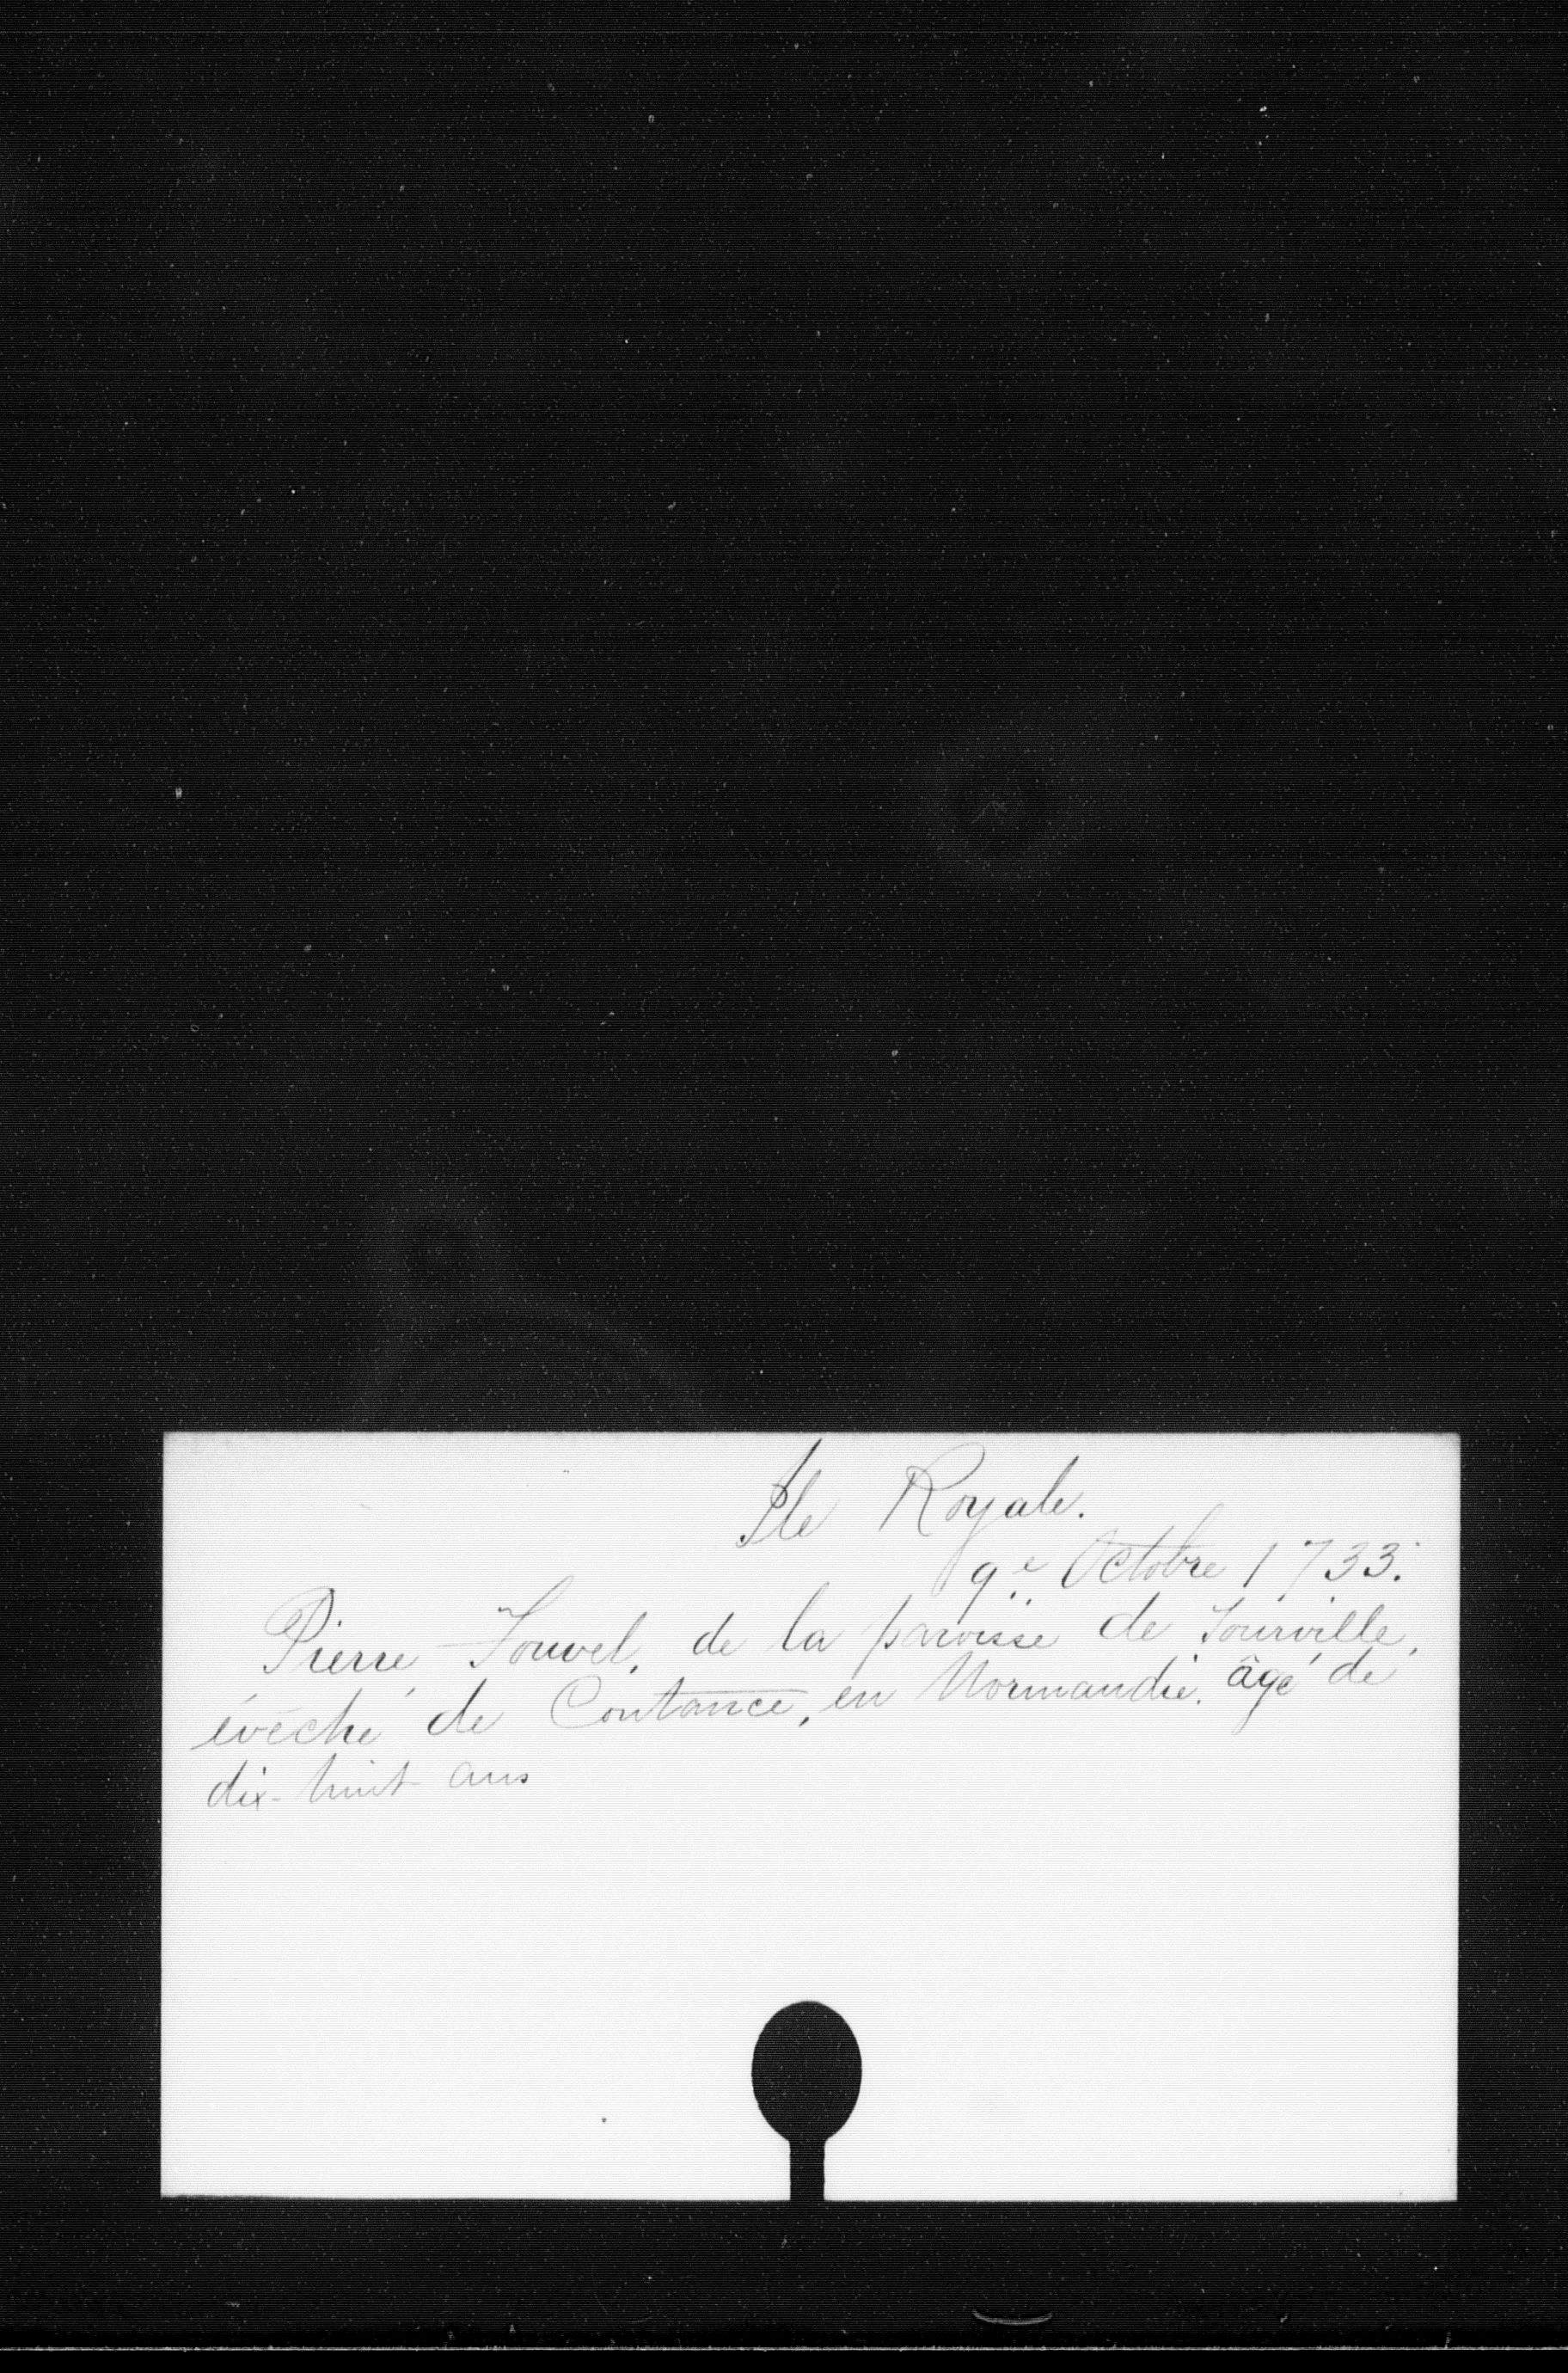 Ile Royale.
9e Octobre 1733.
Pierre Fouvel, de la paroisse de Tourville,
évêché de Coutance, en Normandie, âgé de
dix-huit ans